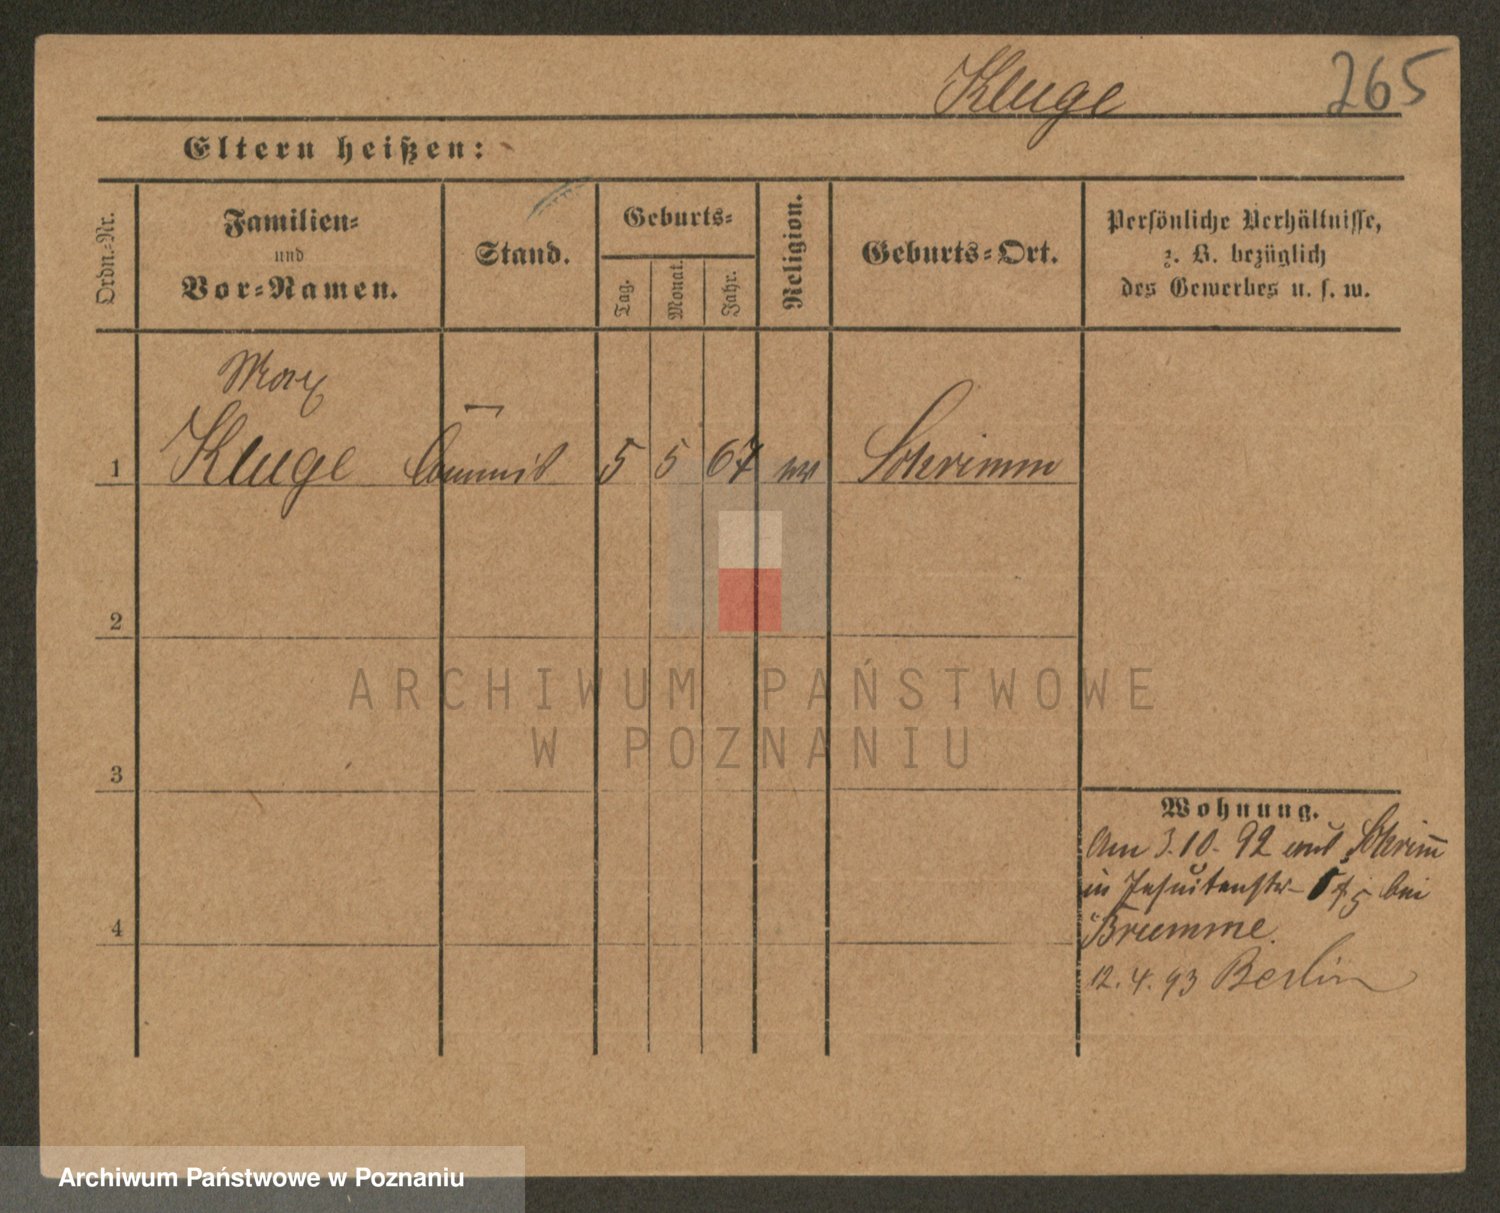 Kluge 265
Eltern heißen:
Ordn.-Nr.
Familien-
und
Vor-Namen.
Stand.
Geburts-
Tag.
Monat.
Jahr.
Religion.
Geburts-Ort.
Persönliche Verhältnisse,
z. B. bezüglich
des Gewerbes u. s. w.
Max
1 Kluge Commis 5 5 67 Schrimm
2
3
4
Wohnung.
Am 3.10.92 aus Schrimm
in Jesuitenstr. 5 bei
Brumme.
12.4.93 Berlin
ARCHIWUM PAŃSTWOWE
W POZNANIU
Archiwum Państwowe w Poznaniu